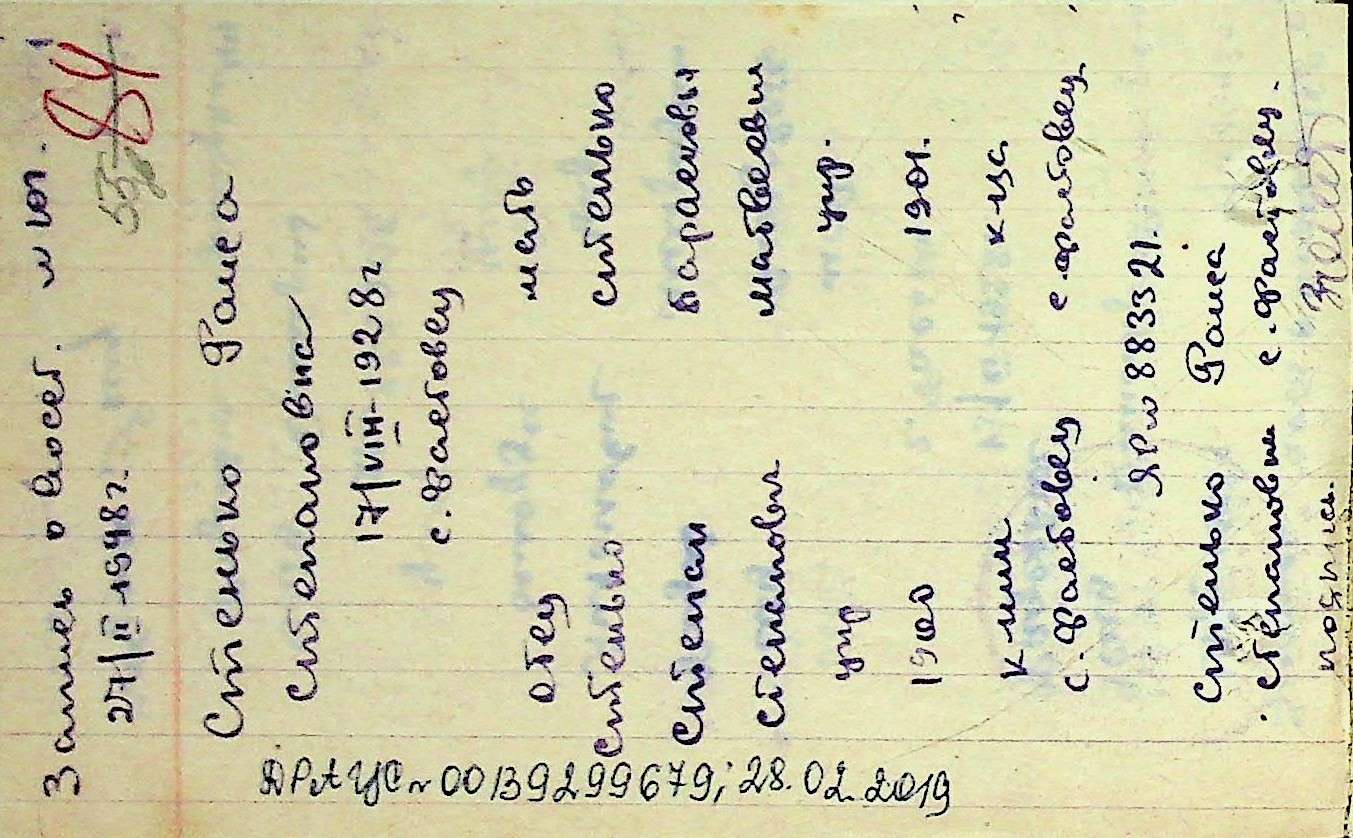 Запись о восст. № 101.
84
27/II-1948 г.
Стенько Раиса
Степановна
17/VIII-1928 г
с. Фастовец
отец мать
Стенько Стенько
Степан Варвара
Степанович Матвеевна
укр. укр.
1900 1901.
к-ник к-ца
с. Фастовец с. Фастовец
ЯР № 883321.
Стенько Раиса
Степановна с. Фастовец.
подпись.
ДРАЦС № 00139299679; 28.02.2019